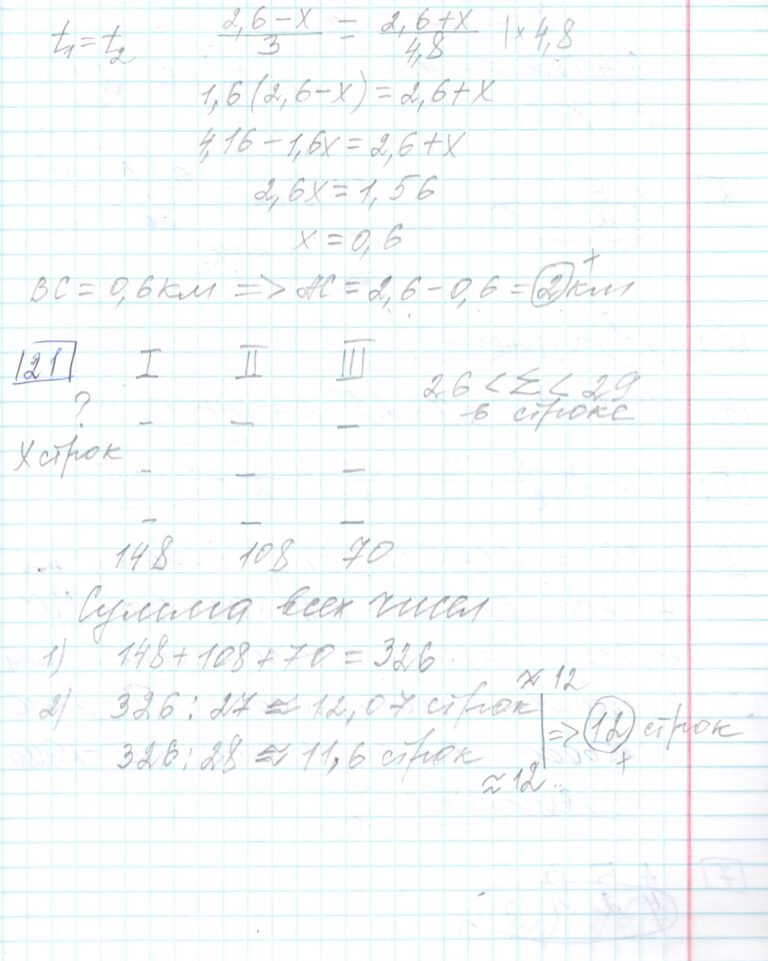 t₁ = t₂ (2,6 - x)/3 = (2,6 + x)/4,8 | × 4,8
1,6(2,6 - x) = 2,6 + x
4,16 - 1,6x = 2,6 + x
2,6x = 1,56
x = 0,6
BC = 0,6 км => AC = 2,6 - 0,6 = 2 км +
21 I II III
26 < Σ < 29
? в строке
- - -
X строк
- - -
- - -
148 108 70
Сумма всех чисел
1) 148 + 108 + 70 = 326
≈ 12
2) 326 : 27 ≈ 12,07 строк
=> 12 строк
326 : 28 ≈ 11,6 строк +
≈ 12